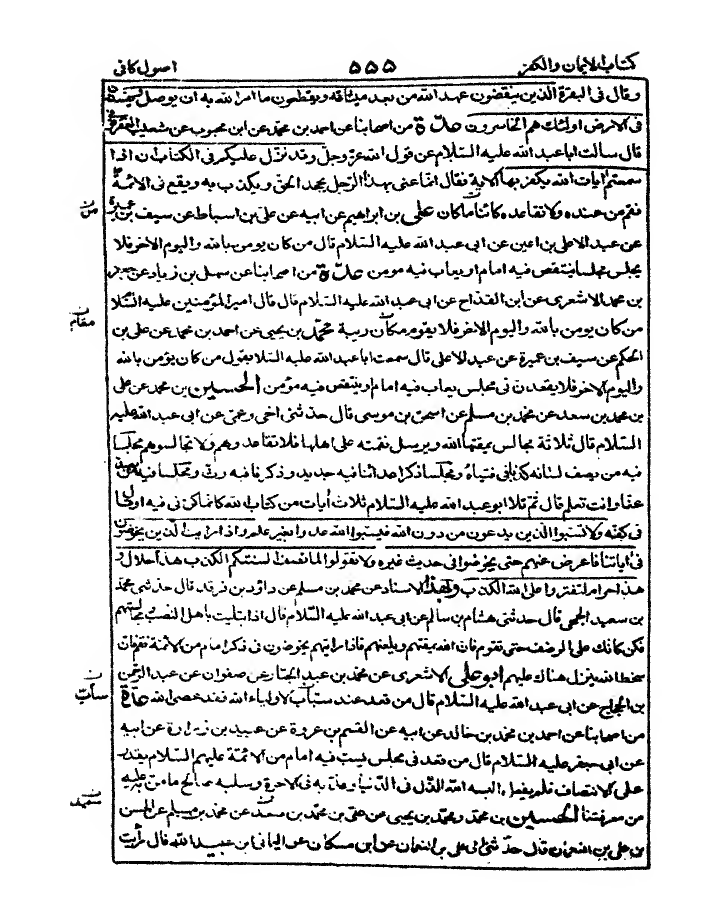 كتاب الايمان والكفر ۵۵۵ اصول كافى
وقال فى البقرة الذين ينقضون عهد الله من بعد ميثاقه ويقطعون ما امر الله به ان يوصل ويفسدون
فى الارض اولئك هم الخاسرون عدّة من اصحابنا عن احمد بن محمّد عن ابن محبوب عن شعيب العقرقوفى
قال سالت ابا عبد الله عليه السّلام عن قول الله عزّ وجلّ وقد نزّل عليكم فى الكتاب ان اذا
سمعتم ايات الله يكفر بها الاية فقال انّما عنى بهذا الرّجل يجحد الحقّ ويكذّب به ويقع فى الائمّة
فقم من عنده ولا تقاعده كائنا ما كان علىّ بن ابراهيم عن ابيه عن علىّ بن اسباط عن سيف بن عميرة
ن من
عن عبد الاعلى بن اعين عن ابى عبد الله عليه السّلام قال من كان يومن بالله واليوم الاخر فلا
يجلس مجلسا ينتقص فيه امام او يعاب فيه مومن عدّة من اصحابنا عن سهل بن زياد عن جعفر
بن محمد الاشعرى عن ابن القدّاح عن ابى عبد الله عليه السّلام قال قال امير المؤمنين عليه السّلا
من كان يومن بالله واليوم الاخر فلا يقوم مكان ريبة محمّد بن يحيى عن احمد بن محمد عن على بن
الحكم عن سيف بن عميرة عن عبد الاعلى قال سمعت ابا عبد الله عليه السّلا يقول من كان يؤمن بالله
واليوم الاخر فلا يقعدن فى مجلس يعاب فيه امام او ينتقص فيه مؤمن الحسين بن محمد عن على
بن محمد بن سعد عن محمد بن مسلم عن اسحق بن موسى قال حدثنى اخى وعمّى عن ابى عبد الله عليه
السّلام قال ثلاثة مجالس يمقتها الله ويرسل نقمته على اهلها فلا تقاعدوهم ولا تجالسوهم مجلسا
فيه من يصف لسانه كذبا فى فتياه ومجلسا ذكر اعدائنا فيه جديد وذكرنا فيه رثّ ومجلسا فيه من يصدّ
عنّا وانت تعلم قال ثمّ تلا ابو عبد الله عليه السّلام ثلاث ايات من كتاب الله كانّما كنّ فى فيه او قال
فى كفّه ولا تسبّوا الذين يدعون من دون الله فيسبّوا الله عدوا بغير علم واذا رايت الّذين يخوضون
فى اياتنا فاعرض عنهم حتى يخوضوا فى حديث غيره ولا تقولوا لما تصف السنتكم الكذب هذا حلال و
هذا حرام لتفتروا على الله الكذب وبهذا الاسناد عن محمد بن مسلم عن داؤد بن فرقد قال حدثنى محمد
بن سعيد الجمحى قال حدثنى هشام بن سالم عن ابى عبد الله عليه السّلام قال اذا ابتليت باهل النصب ومجالستهم
فكن كانّك على الرضف حتى تقوم فانّ الله يمقتهم ويلعنهم فاذا رايتهم يخوضون فى ذكر امام من الائمّة فقم فانّ
سخط الله ينزل هناك عليهم ابو على الاشعرى عن محمد بن عبد الجبّار عن صفوان عن عبد الرّحمن
بن الحجّاج عن ابى عبد الله عليه السّلام قال من قعد عند سبّاب لاولياء الله فقد عصى الله عدّة
ن سابّ
من اصحابنا عن احمد بن محمّد بن خالد عن ابيه عن القسم بن عروة عن عبيد بن زرارة عن ابيه
عن ابى جعفر عليه السّلام قال من قعد فى مجلس يسبّ فيه امام من الائمّة عليهم السّلام يقدر
على الانتصاف فلم يفعل البسه الله الذّل فى الدّنيا وعذّبه فى الاخرة وسلبه صالح ما منّ به عليه
من معرفتنا الحسين بن محمّد ومحمّد بن يحيى عن علىّ بن محمّد بن سعد عن محمد بن مسلم عن الحسن
بن على بن النعمان قال حدّثنى ابى على بن النعمان عن ابن مسكان عن اليمانى بن عبيد الله قال رايت